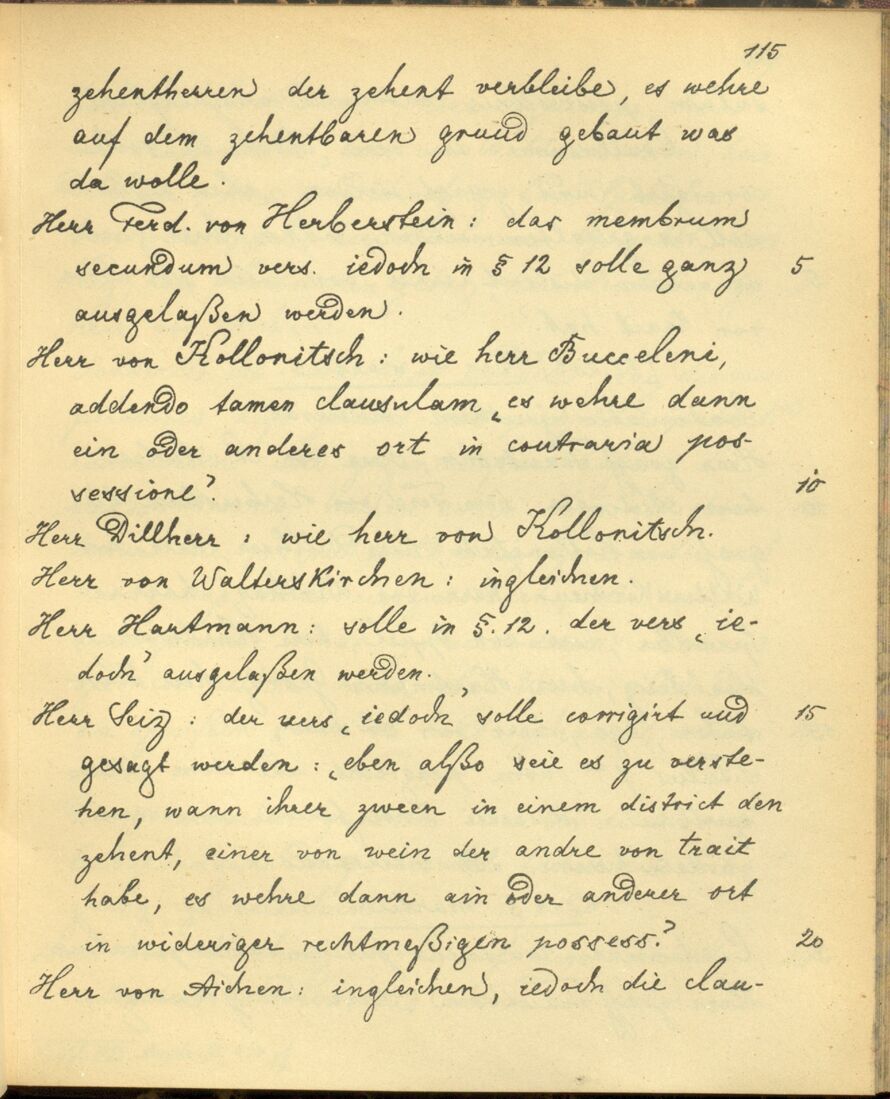 115
zehentherren der zehent verbleibe, es wehre
auf dem zehentbaren grund gebaut was
da wolle.
Herr Ferd. von Herberstein: das membrum
secundum vers. iedoch in § 12 solle ganz 5
ausgelaßen werden.
Herr von Kollonitsch: wie herr Bucceleni,
addendo tamen clausulam „es wehre dann
ein oder anderes ort in contraria pos-
sessione“. 10
Herr Dillherr: wie herr von Kollonitsch.
Herr von Walterskirchen: ingleichen.
Herr Hartmann: solle in §. 12. der vers „ie-
doch“ ausgelaßen werden.
Herr Seiz: der vers „iedoch“ solle corrigirt und 15
gesagt werden: „eben alßo seie es zu verste-
hen, wann ihrer zween in einem district den
zehent, einer von wein der andre von trait
habe, es wehre dann ain oder anderer ort
in wideriger rechtmeßigen possess.“ 20
Herr von Aichen: ingleichen, iedoch die clau-